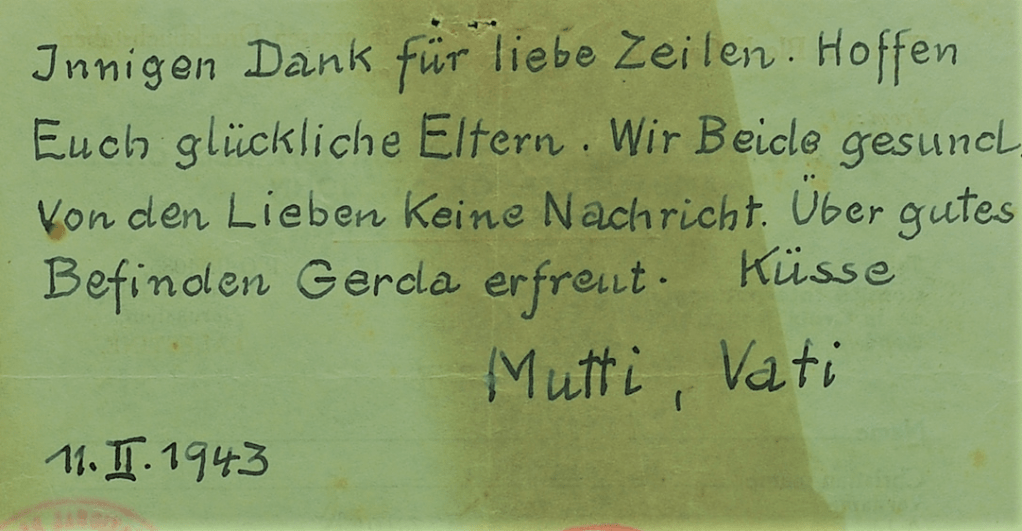 Innigen Dank für liebe Zeilen. Hoffen
Euch glückliche Eltern. Wir Beide gesund.
Von den Lieben Keine Nachricht. Über gutes
Befinden Gerda erfreut. Küsse
Mutti, Vati
11. II. 1943